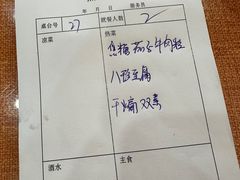 年 月 日 服务员
桌台号 27 就餐人数 2
凉菜 热菜
焦糖茄子牛肉粒
八珍豆腐
干煸双素
酒水 主食